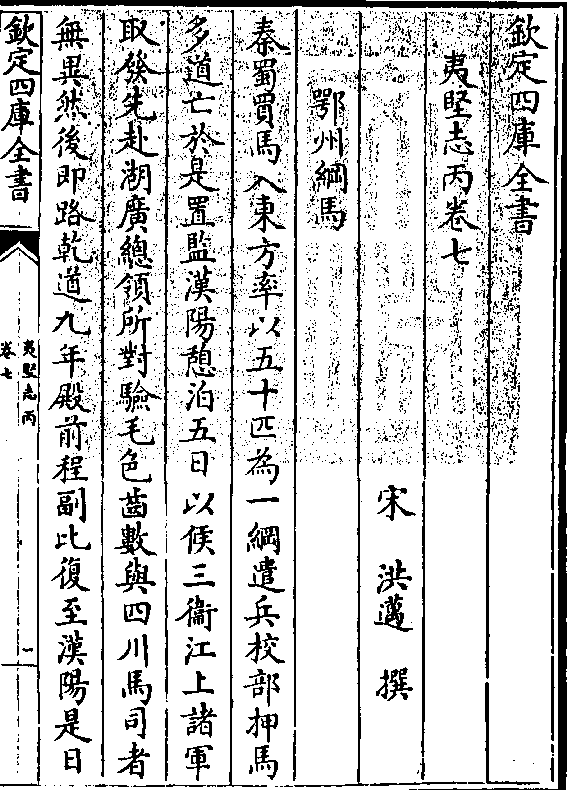 欽定四庫全書
夷堅志丙卷七
宋 洪邁 撰
鄂州綱馬
秦蜀買馬入東方率以五十匹為一綱遣兵校部押馬
多道亡於是置監漢陽憩泊五日以候三衙江上諸軍
取發先赴湖廣總領所對驗毛色齒數與四川馬司者
無異然後即路乾道九年殿前程副比復至漢陽是日
欽定四庫全書
夷堅志丙
卷七
一